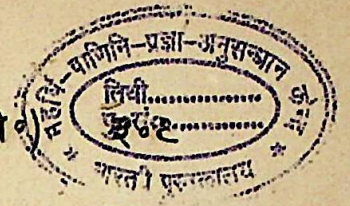 महर्षि-पाणिनि-प्रज्ञा-अनुसन्धान केन्द्र
तिथी..............
३०८
* भारती पुस्तकालय *